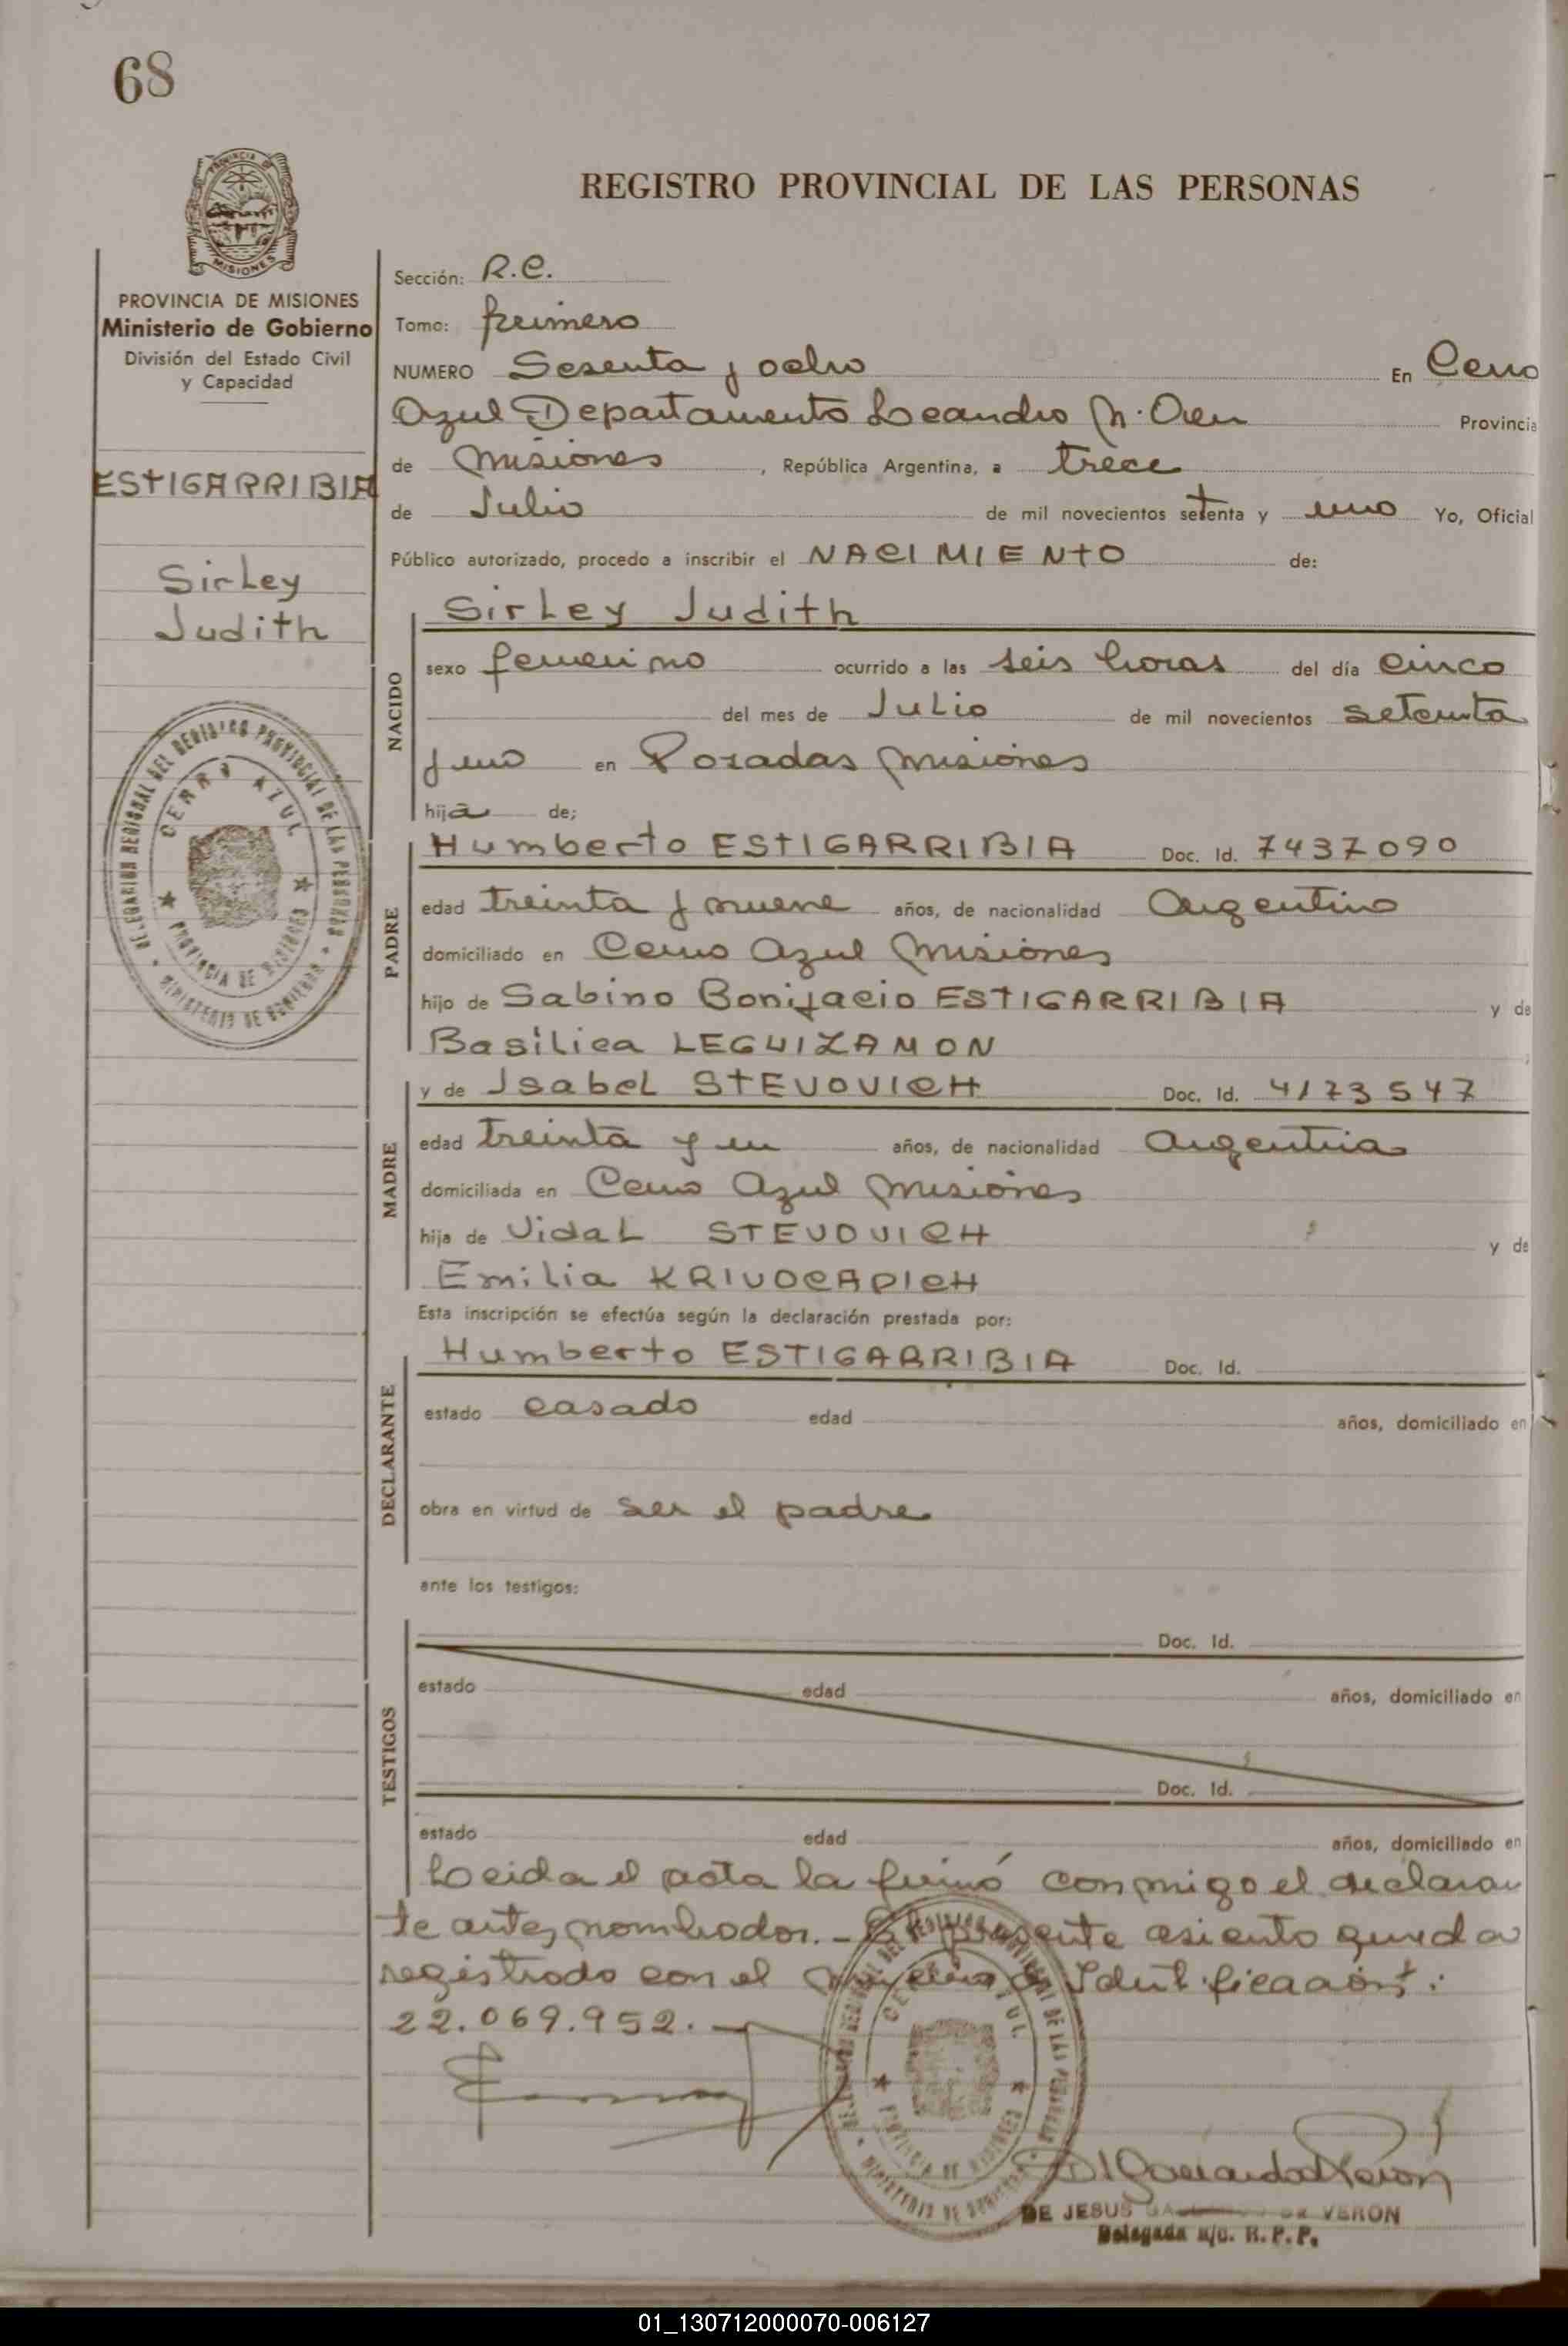 68
PROVINCIA DE
MISIONES
REGISTRO PROVINCIAL DE LAS PERSONAS
PROVINCIA DE MISIONES
Ministerio de Gobierno
División del Estado Civil
y Capacidad
ESTIGARRIBIA
Sirley
Judith
DELEGACION REGIONAL DEL REGISTRO PROVINCIAL DE LAS PERSONAS
CERRO AZUL
PROVINCIA DE MISIONES
MINISTERIO DE GOBIERNO
Sección: R.C.
Tomo: primero
NUMERO Sesenta y ocho En Cerro
Azul Departamento Leandro N. Alem Provincia
de Misiones, República Argentina, a trece
de Julio de mil novecientos setenta y uno Yo, Oficial
Público autorizado, procedo a inscribir el NACIMIENTO de:
NACIDO
Sirley Judith
sexo femenino ocurrido a las seis horas del día cinco
del mes de Julio de mil novecientos setenta
y uno en Posadas Misiones
hija de;
PADRE
Humberto ESTIGARRIBIA Doc. Id. 7437090
edad treinta y nueve años, de nacionalidad Argentino
domiciliado en Cerro Azul Misiones
hijo de Sabino Bonifacio ESTIGARRIBIA y de
Basilica LEGUIZAMON
MADRE
y de Isabel STEVOVICH Doc. Id. 4173547
edad treinta y un años, de nacionalidad argentina
domiciliada en Cerro Azul Misiones
hija de Vidal STEVOVICH y de
Emilia KRIVOCAPICH
Esta inscripción se efectúa según la declaración prestada por:
DECLARANTE
Humberto ESTIGARRIBIA Doc. Id.
estado casado edad años, domiciliado en
obra en virtud de ser el padre
ante los testigos:
TESTIGOS
Doc. Id.
estado edad años, domiciliado en
Doc. Id.
estado edad años, domiciliado en
Leida el acta la firmó conmigo el declaran
te antes nombrados.- El presente asiento queda
registrado con el de Identificación:
22.069.952.-
DELEGACION REGIONAL DEL REGISTRO PROVINCIAL DE LAS PERSONAS
CERRO AZUL
PROVINCIA DE MISIONES
MINISTERIO DE GOBIERNO
DE JESUS DE VERON
Delegada a/c. R.P.P.
01_130712000070-006127